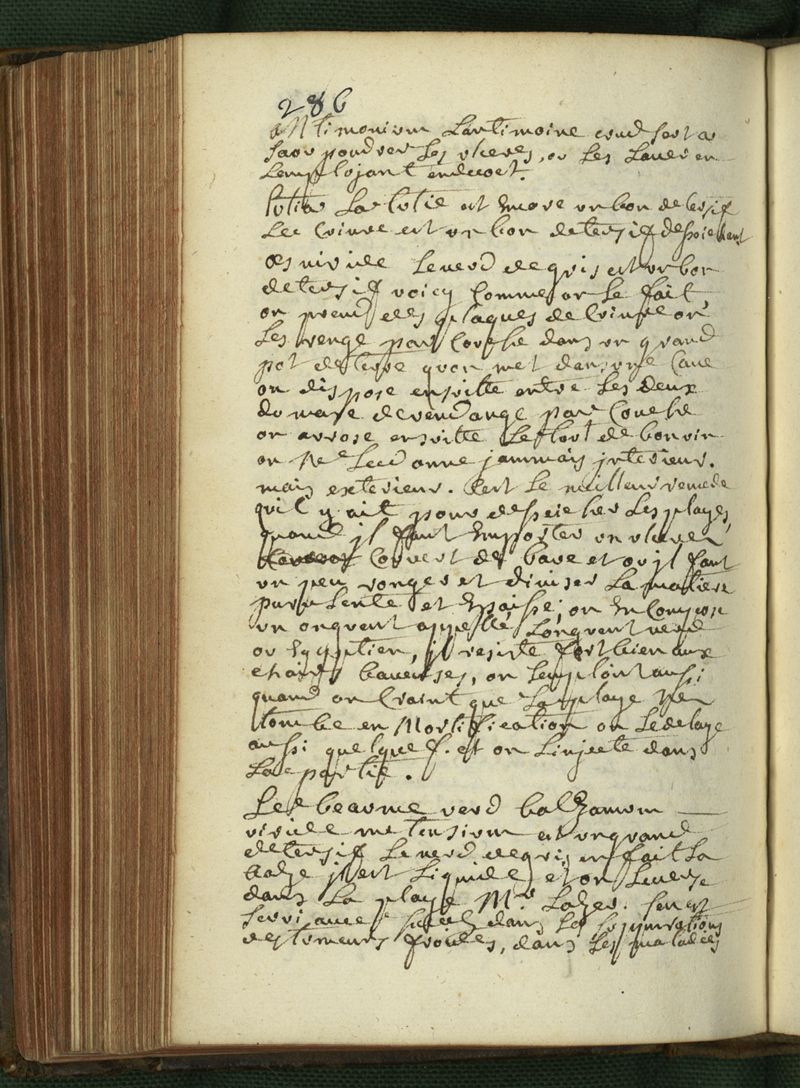 286
antimonium Lantimoine crud sert a
saoupoudrer Les ulceres, ou Les Laver en
Lemplojant endecoct.
tutia La tutie est encore un bon detersif
Le Cuivre est un bon detersif
æs viride Leverd degris est un bon
detersif voicy Comme on Le fait,
on prend des plaques de Cuivre on
Les renge par Couche dans un grand
pot deterre quon met dans une Cave
on dispose ensuitte entre Les deux
du marc devendange par Couche
on arrose ensuitte Le tout de bon vin
on Ne Le donne jammais interieur.
mais exterieur. Cest Le meilleur remede
quil y ait pour dessecher Les playes,
quand il faut emporter un ulcere
Couvert de bave et ou il faut
un peu ronger et diviser La matiere
purulente et Epaisse; on en Compose
un onguent appellé Longuent
ou Egyptien, il resiste fort bien aux
chairs baveuses, on Lemploit aussi
quand on Craint que La playe Ne
tombe en Mortification on Le delaye
aussi quelque f. et on Linjecte dans
La partie.
Le beaume verd balzamum
viride metensium est un grand
detersif Le verd degris en fait La
baze il est Liquide et on Leverse
dans La playe Mr. sen est
servi avec succez dans Les suppurations
des tumeurs froides, dans Les maladies